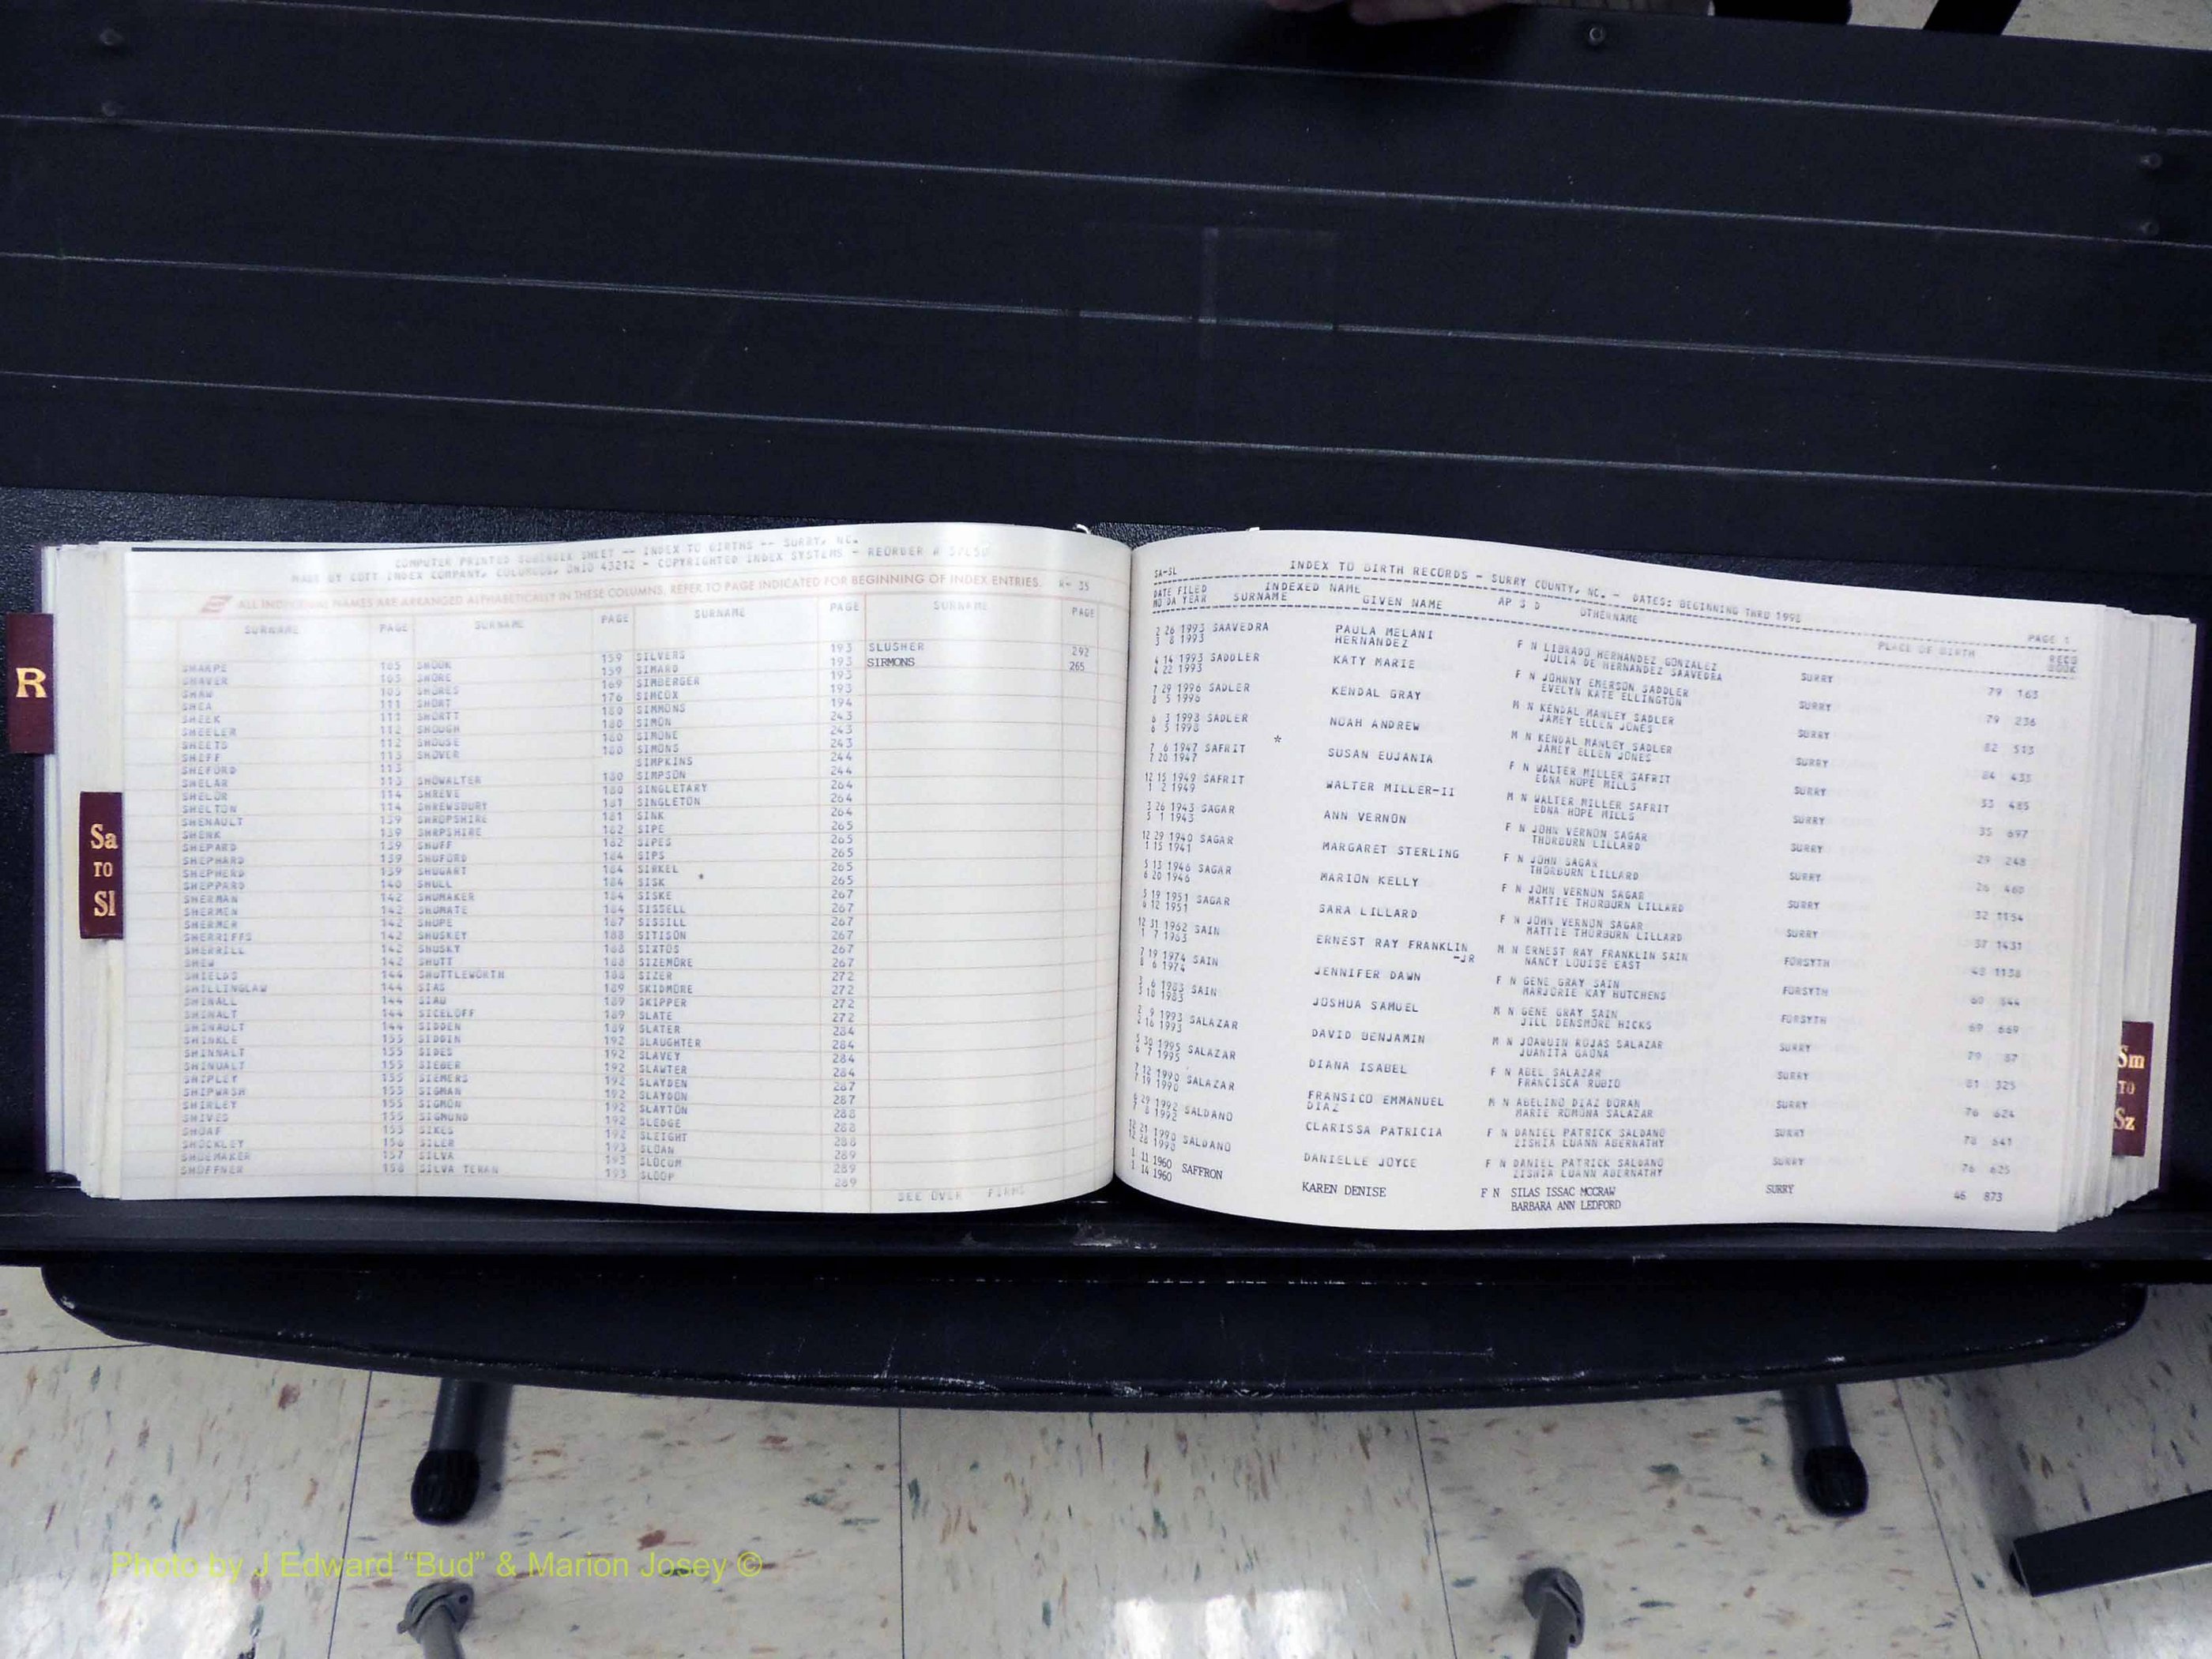 COMPUTER PRINTED SUBINDEX SHEET -- INDEX TO BIRTHS -- SURRY, NC.
MADE BY COTT INDEX COMPANY, COLUMBUS, OHIO 43212 - COPYRIGHTED INDEX SYSTEMS - REORDER #
ALL INDIVIDUAL NAMES ARE ARRANGED ALPHABETICALLY IN THESE COLUMNS. REFER TO PAGE INDICATED FOR BEGINNING OF INDEX ENTRIES.
SURNAME PAGE SURNAME PAGE SURNAME PAGE SURNAME PAGE
SHARPE
SHAVER
SHAW
SHEA
SHEEK
SHEELER
SHEETS
SHEFF
SHEFORD
SHELAR
SHELOR
SHELTON
SHENAULT
SHENK
SHEPARD
SHEPHARD
SHEPHERD
SHEPPARD
SHERMAN
SHERMEN
SHERMER
SHERRIFFS
SHERRILL
SHEW
SHIELDS
SHILLINGLAW
SHINALL
SHINALT
SHINAULT
SHINKLE
SHINNALT
SHINUALT
SHIPLEY
SHIPWASH
SHIRLEY
SHIVES
SHOAF
SHOCKLEY
SHOEMAKER
SHOFFNER
SHOOK 159
SHORE 159
SHORES 169
SHORT 176
SHORTT 180
SHOUGH 180
SHOUSE 180
SHOVER 180
SHOWALTER 180
SHREVE 180
SHREWSBURY 181
SHROPSHIRE 181
SHRPSHIRE 182
SHUFF 182
SHUFORD 184
SHUGART 184
SHULL 184
SHUMAKER 184
SHUMATE 184
SHUPE 187
SHUSKEY 188
SHUSKY 188
SHUTT 188
SHUTTLEWORTH 188
SIAS 189
SIAU 189
SICELOFF 189
SIDDEN 189
SIDDIN 192
SIDES 192
SIEBER 192
SIEMERS 192
SIGMAN 192
SIGMON 192
SIGMUND 192
SIKES 192
SILER 193
SILVA 193
SILVA TERAN 193
SILVERS 193
SIMARD 193
SIMBERGER 193
SIMCOX 193
SIMMONS 194
SIMON 243
SIMONE 243
SIMONS 243
SIMPKINS 244
SIMPSON 244
SINGLETARY 264
SINGLETON 264
SINK 264
SIPE 265
SIPES 265
SIPS 265
SIRKEL 265
SISK * 265
SISKE 267
SISSELL 267
SISSILL 267
SITISON 267
SIXTOS 267
SIZEMORE 267
SIZER 272
SKIDMORE 272
SKIPPER 272
SLATE 272
SLATER 284
SLAUGHTER 284
SLAVEY 284
SLAWTER 284
SLAYDEN 287
SLAYDON 287
SLAYTON 288
SLEDGE 288
SLEIGHT 288
SLOAN 289
SLOCUM 289
SLOOP 289
SLUSHER 292
SIRMONS 265
SEE OVER FIRMS
R
Sa
TO
Sl
SA-SL INDEX TO BIRTH RECORDS - SURRY COUNTY, NC. - DATES: BEGINNING THRU 1998 PAGE 1
DATE FILED INDEXED NAME
MO DA YEAR SURNAME GIVEN NAME AP S D OTHERNAME PLACE OF BIRTH
2 26 1993 SAAVEDRA PAULA MELANI F N LIBRADO HERNANDEZ GONZALEZ SURRY 79 163
3 8 1993 HERNANDEZ JULIA DE HERNANDEZ SAAVEDRA
4 14 1993 SADDLER KATY MARIE F N JOHNNY EMERSON SADDLER SURRY 79 236
4 22 1993 EVELYN KATE ELLINGTON
7 29 1996 SADLER KENDAL GRAY M N KENDAL MANLEY SADLER SURRY 82 513
8 5 1996 JAMEY ELLEN JONES
6 3 1998 SADLER NOAH ANDREW M N KENDAL MANLEY SADLER SURRY 84 435
6 5 1998 JAMEY ELLEN JONES
7 6 1947 SAFRIT * SUSAN EUJANIA F N WALTER MILLER SAFRIT SURRY 33 485
7 20 1947 EDNA HOPE MILLS
12 15 1949 SAFRIT WALTER MILLER-II M N WALTER MILLER SAFRIT SURRY 35 697
1 2 1949 EDNA HOPE MILLS
3 26 1943 SAGAR ANN VERNON F N JOHN VERNON SAGAR SURRY 29 248
5 1 1943 THORBURN LILLARD
12 29 1940 SAGAR MARGARET STERLING F N JOHN SAGAR SURRY 26 460
1 15 1941 THORBURN LILLARD
5 13 1946 SAGAR MARION KELLY F N JOHN VERNON SAGAR SURRY 32 1154
6 20 1946 MATTIE THORBURN LILLARD
5 19 1951 SAGAR SARA LILLARD F N JOHN VERNON SAGAR SURRY 37 1431
6 12 1951 MATTIE THORBURN LILLARD
12 31 1962 SAIN ERNEST RAY FRANKLIN M N ERNEST RAY FRANKLIN SAIN FORSYTH 48 1138
1 7 1963 -JR NANCY LOUISE EAST
7 19 1974 SAIN JENNIFER DAWN F N GENE GRAY SAIN FORSYTH 60 544
8 6 1974 MARJORIE KAY HUTCHENS
3 6 1983 SAIN JOSHUA SAMUEL M N GENE GRAY SAIN FORSYTH 69 669
3 10 1983 JILL DENSMORE HICKS
2 9 1993 SALAZAR DAVID BENJAMIN M N JOAQUIN ROJAS SALAZAR SURRY 79 87
2 16 1993 JUANITA GAONA
5 30 1995 SALAZAR DIANA ISABEL F N ABEL SALAZAR SURRY 81 325
6 7 1995 FRANCISCA RUBIO
7 12 1990 SALAZAR FRANSICO EMMANUEL M N ABELINO DIAZ DURAN SURRY 76 624
7 19 1990 DIAZ MARIE ROMONA SALAZAR
6 29 1992 SALDANO CLARISSA PATRICIA F N DANIEL PATRICK SALDANO SURRY 78 641
7 8 1992 ZISHIA LUANN ABERNATHY
12 21 1990 SALDANO DANIELLE JOYCE F N DANIEL PATRICK SALDANO SURRY 76 625
12 28 1990 ZISHIA LUANN ABERNATHY
1 11 1960 SAFFRON KAREN DENISE F N SILAS ISSAC MCCRAW SURRY 46 873
1 14 1960 BARBARA ANN LEDFORD
Sm
TO
Sz
Photo by J Edward “Bud” & Marion Josey ©